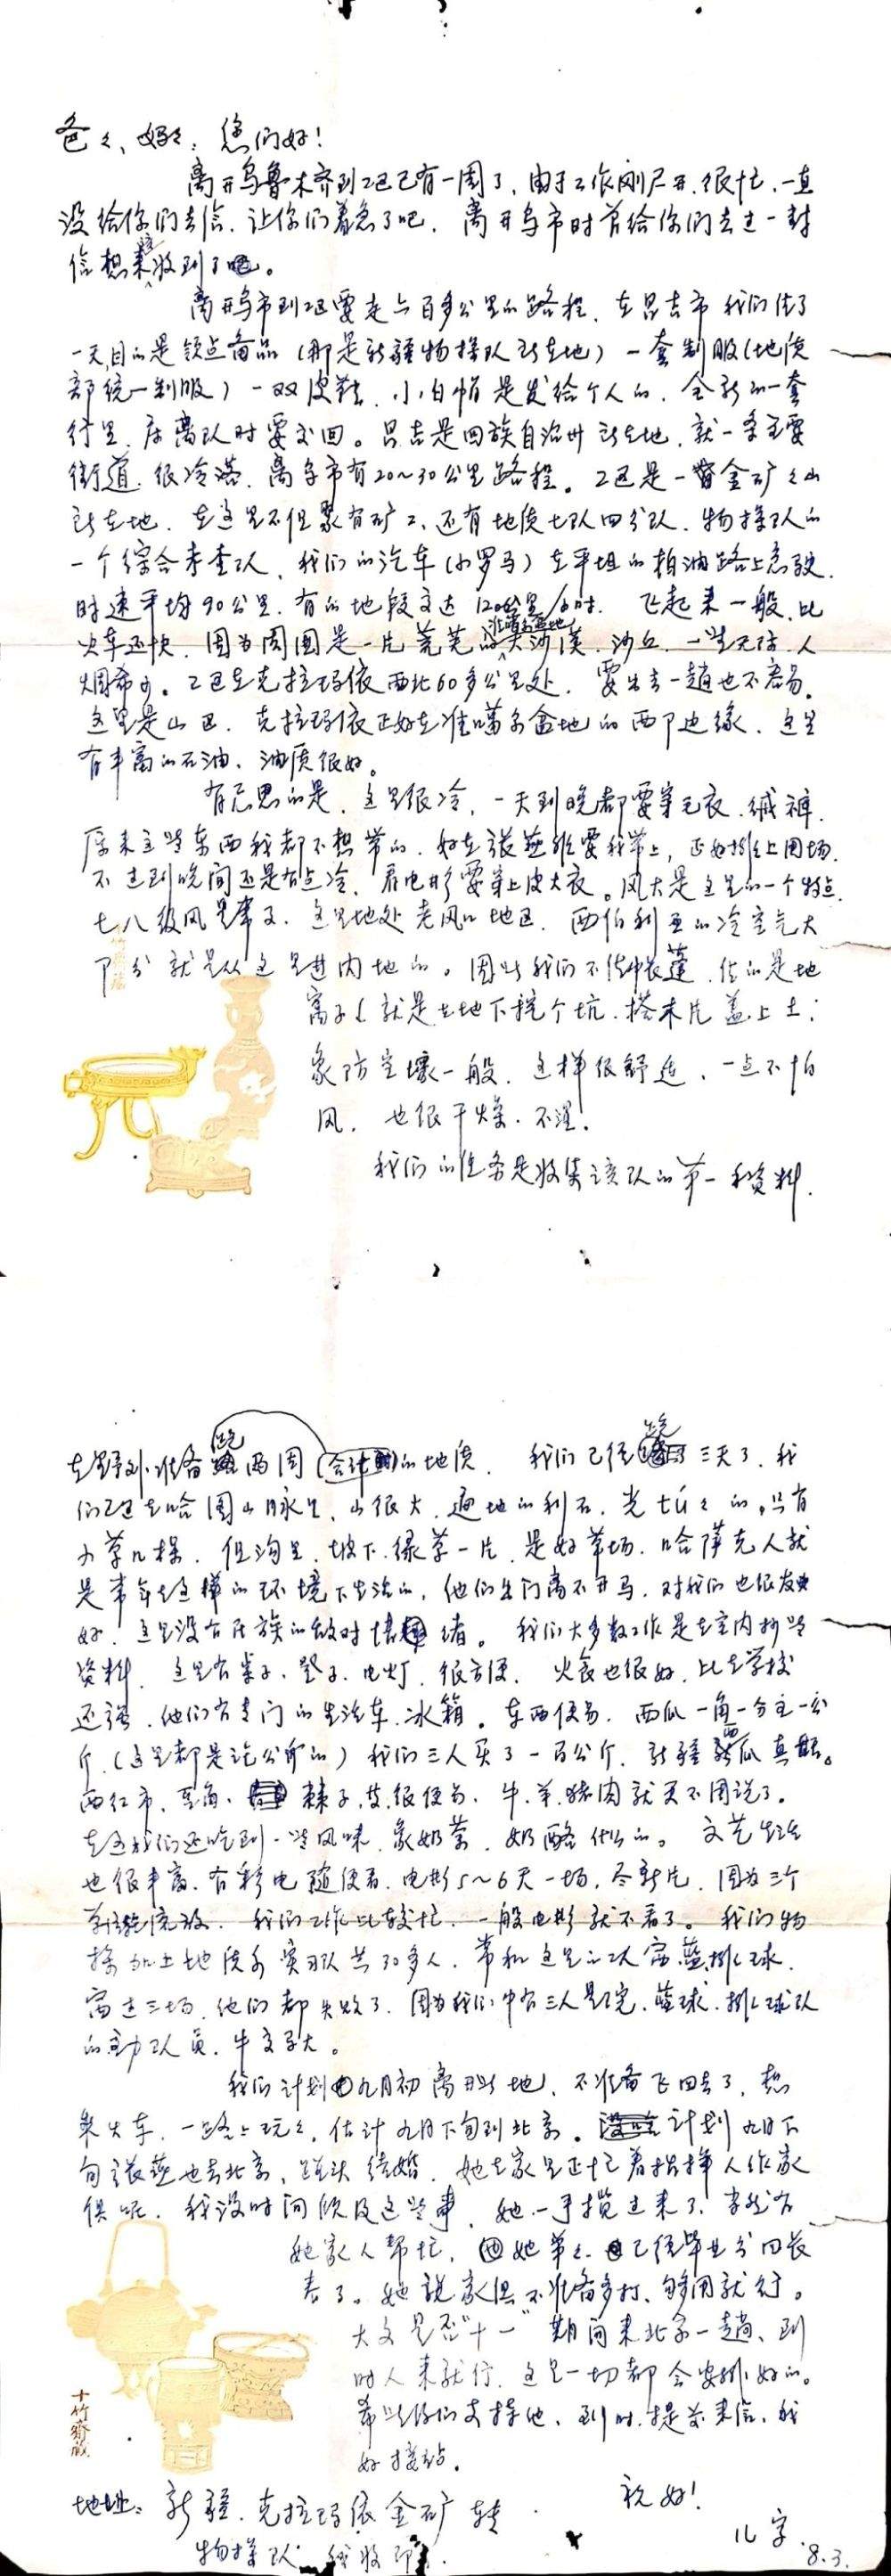 爸々、妈々：您们好！
离开乌鲁木齐到工区已有一周了，由于工作刚展开，很忙，一直
没给你们去信，让你们着急了吧，离开乌市时曾给你们去过一封
信想来该收到了吧。
离开乌市到工区要走六百多公里的路程，在昌吉市我们住了
一天，目的是领点备品（那是新疆物探队所在地）一套制服（地质
部统一制服）一双皮鞋、小白帽是发给个人的，全新的一套
行里，床离队时要交回。昌吉是回族自治州所在地，就一条主要
街道，很冷落，离乌市有20～30公里路程。工区是一金矿矿山
所在地，在这里不但聚有矿工、还有地质七队四分队、物探队的
一个综合考查队，我们的汽车（小罗马）在平坦的柏油路上急驶，
时速平均90公里，有的地段高达120公里/小时，飞起来一般，比
火车还快，因为周围是一片荒芜的准噶尔盆地大沙漠，沙丘，一望无际，人
烟希少。工区在克拉玛依西北60多公里处，要出去一趟也不容易。
这里是山区，克拉玛依正好在准噶尔盆地的西部边缘，这里
有丰富的石油，油质很好。
有意思的是，这里很冷，一天到晚都要穿毛衣、绒裤，
原来这些东西我都不想带的，好在张燕非要我带上，正好排上用场，
不过到晚间还是有点冷，看电影要穿上皮大衣。风大是这里的一个特点，
七八级风是常事，这里地处老风口地区，西伯利亚的冷空气大
部分就是从这里进内地的。因此我们不住帐蓬，住的是地
窝子（就是在地下挖个坑，搭木片盖上土；
象防空壕一般，这样很舒适，一点不怕
风，也很干燥，不湿。
我们的任务是收集该队的第一和资料，
在野外准备跑两周（合计）的地质，我们已经跑三天了，我
们工区在哈图山脉里，山很大，遍地的利石，光秃々的，只有
小草几棵，但沟里，坡下，绿草一片，是好草场，哈萨克人就
是常年在这样的环境下生活的，他们出门离不开马，对我们也很友
好，这里没有民族的敌对情绪。我们大多数工作是在室内抄些
资料，这里有桌子、登子、电灯，很方便，火食也很好，比在学校
还强，他们有专门的生活车、冰箱。东西便易，西瓜一角一分钱一公
斤，（这里都是论公斤的）我们三人买了一百公斤，新疆西瓜真甜。
西红市、豆角、辣子，皆很便易，牛、羊、猪肉就更不用说了。
在这我们还吃到一些风味，象奶茶，奶酪什么的。文艺生活
也很丰富，有彩电随便看，电影5～6天一场，尽新片，因为三个
单位流放，我们工作比较忙，一般电影就不看了。我们物
探加上地质系实习队共30多人，常和这里的工人赛蓝排球，
赛过三场，他们都失败了，因为我们中有三人是院蓝球、排球队
的主力队员，牛气不大。
我们计划九月初离开此地，不准备飞回去了，想
乘火车，一路上玩々，估计九月下旬到北京。计划九月下
旬张燕也去北京，碰头结婚，她在家里正忙着指挥人作家
俱呢，我没时间顾及这些事，她一手揽过来了，当然有
她家人帮忙，她弟々已经毕业分回长
春了。她说家俱不准备多打，够用就行。
大文是否“十一”期间来北京一趟，到
时人来就行，这里一切都会安排好的。
希望你们支持他，到时提前来信，我
好接站。
祝好！
地址：新疆，克拉玛依金矿转
物探队 我收即可。
儿字，
8.3.
十竹斋藏